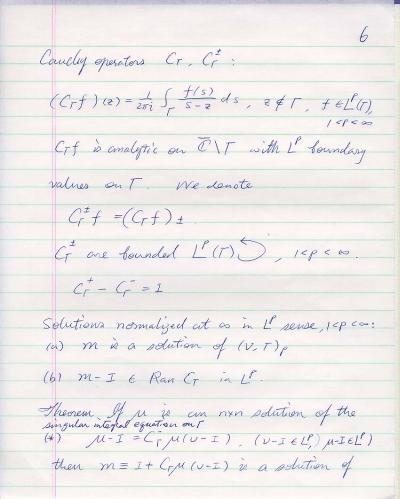 6
Cauchy operators C_Γ, C_Γ^± :
(C_Γ f)(z) = 1/2πi ∫_Γ f(s)/s-z ds, z ∉ Γ, f ∈ L^p(Γ),
1<p<∞
C_Γ f is analytic on C̄\Γ with L^p boundary
values on Γ. We denote
C_Γ^± f = (C_Γ f)_± .
C_Γ^± are bounded L^p(Γ)⟲, 1<p<∞.
C_Γ^+ - C_Γ^- = 1
Solutions normalized at ∞ in L^p sense, 1<p<∞:
(a) m is a solution of (v,Γ)_p
(b) m-I ∈ Ran C_Γ in L^p.
Theorem If μ is an nxn solution of the
singular integral equation on Γ
(*) μ-I = C_Γ^- μ(v-I) . (v-I ∈ L^p, μ-I ∈ L^p)
then m ≡ I + C_Γ μ(v-I) is a solution of